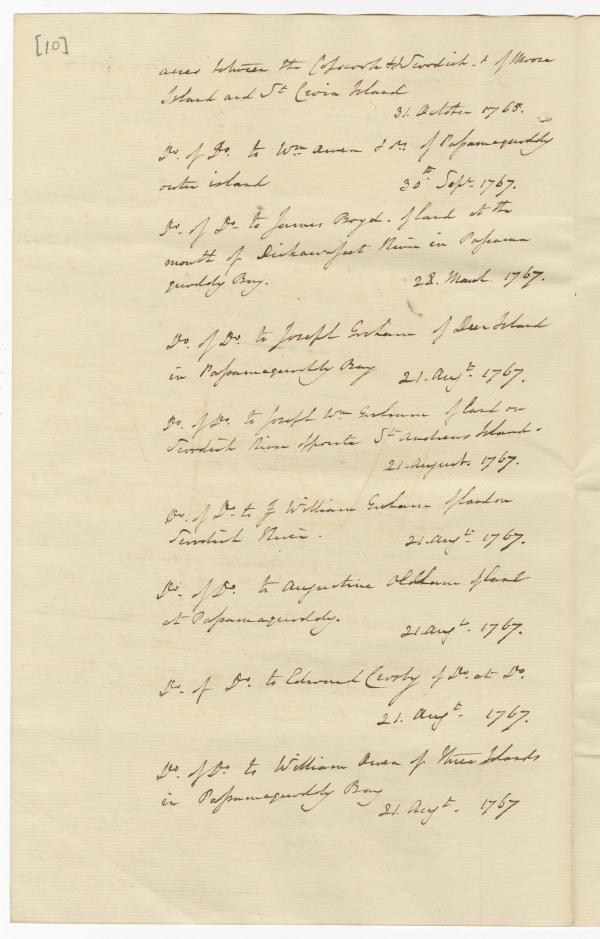 [10]
acres between the Copscook & Scoodick - & of Moose
Island and St Croix Island
31. October 1765.
Do. of Do. to Wm Owen & Os. of Passamaquoddy
outer island
30th Sepr. 1767.
Do. of Do. to James Boyd. of land at the
mouth of River in Passama
quoddy Bay.
28. March. 1767.
Do. of Do. to Joseph Gorham of Deer Island
in Passamaquoddy Bay
21. Augt. 1767.
Do. of Do. to Joseph Wm Gorham of land on
Scoodick River opposite St Andrews Island.
21. August. 1767.
Do. of Do. to William Graham of land on
Scoodick River.
21. Augt. 1767.
Do. of Do. to Augustine Oldham of land
at Passamaquoddy.
21. Augt. 1767.
Do. of Do. to Edward Crosby of Do. at Do.
21. Augt. 1767.
Do. of Do. to William Owen of three Islands
in Passamaquoddy Bay
21. Augt. 1767